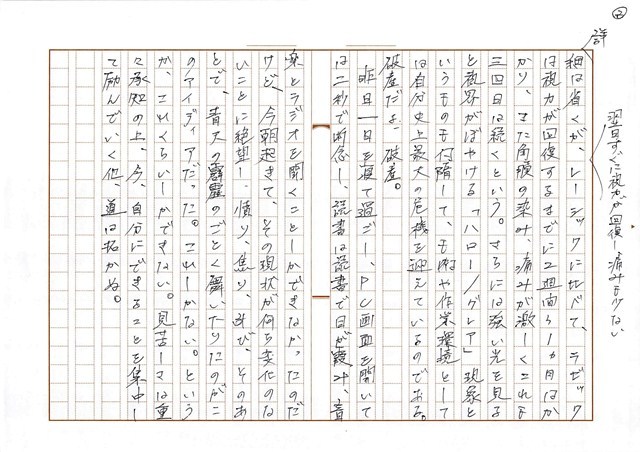 ②
詳
細は省くが、レーシックに比べて、ラゼック
翌日すぐに視力が回復し痛みも少ない
は視力が回復するまでに2週間から1ヵ月はか
かり、また角膜の染み、痛みが激しくこれも
三四日は続くという。さらには強い光を見る
と視界がぼやける「ハロー/グレア」現象と
いうものも
は自分史上最大の危機を迎えているのである。
破産だよ、破産。
昨日一日を寝て過ごし、PC画面を開いて
は二秒で断念し、読書は読書で目が霞み、音
楽とラジオを聞くことしかできなかったのだ
けど、今朝起きて、その現状が何ら変化のな
いことに絶望し、憤り、焦り、叫び、そのあ
とで、青天の霹靂のごとく舞いおりたのがこ
のアイディアだった。これしかない。という
か、これくらいしかできない。見苦しさは重
々承知の上、今、自分にできることを集中し
て励んでいく他、道は拓かぬ。